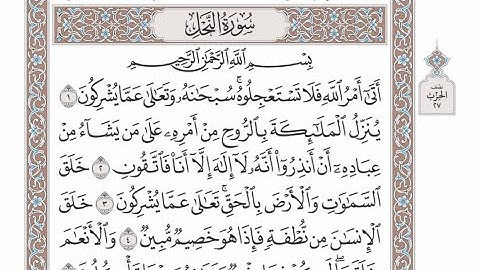 سُورَةُ النَّحْلِ
بِسْمِ اللَّهِ الرَّحْمَٰنِ الرَّحِيمِ
أَتَىٰٓ أَمْرُ ٱللَّهِ فَلَا تَسْتَعْجِلُوهُۚ سُبْحَٰنَهُۥ وَتَعَٰلَىٰ عَمَّا يُشْرِكُونَ ١
يُنَزِّلُ ٱلْمَلَٰٓئِكَةَ بِٱلرُّوحِ مِنْ أَمْرِهِۦ عَلَىٰ مَن يَشَآءُ مِنْ
عِبَادِهِۦٓ أَنْ أَنذِرُوٓا۟ أَنَّهُۥ لَآ إِلَٰهَ إِلَّآ أَنَا۠ فَٱتَّقُونِ ٢ خَلَقَ
ٱلسَّمَٰوَٰتِ وَٱلْأَرْضَ بِٱلْحَقِّۚ تَعَٰلَىٰ عَمَّا يُشْرِكُونَ ٣ خَلَقَ
ٱلْإِنسَٰنَ مِن نُّطْفَةٍ فَإِذَا هُوَ خَصِيمٌ مُّبِينٌ ٤ وَٱلْأَنْعَٰمَ
نصف
الحزب
٢٧